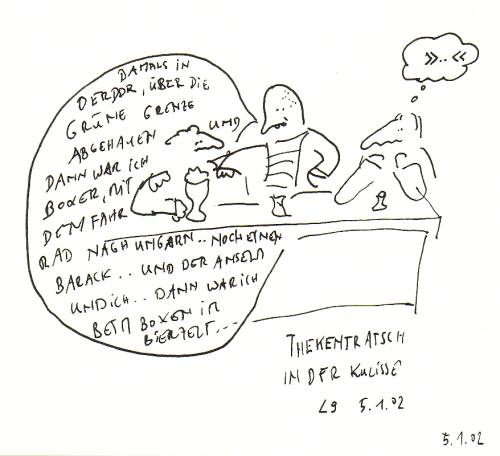 »..«
DAMALS IN
DERDDR, ÜBER DIE
GRÜNE GRENZE
ABGEHAUEN UND
DANN WAR ICH
BOXER, MIT
DEM FAHR
RAD NACH UNGARN.. NOCH EINEN
BARACK.. UND DER ANSELM
UND ICH.. DANN WAR ICH
BEIM BOXEN IM
BIERZELT...
THEKENTRATSCH
IN DER KULISSE
L9 5.1.02
5.1.02